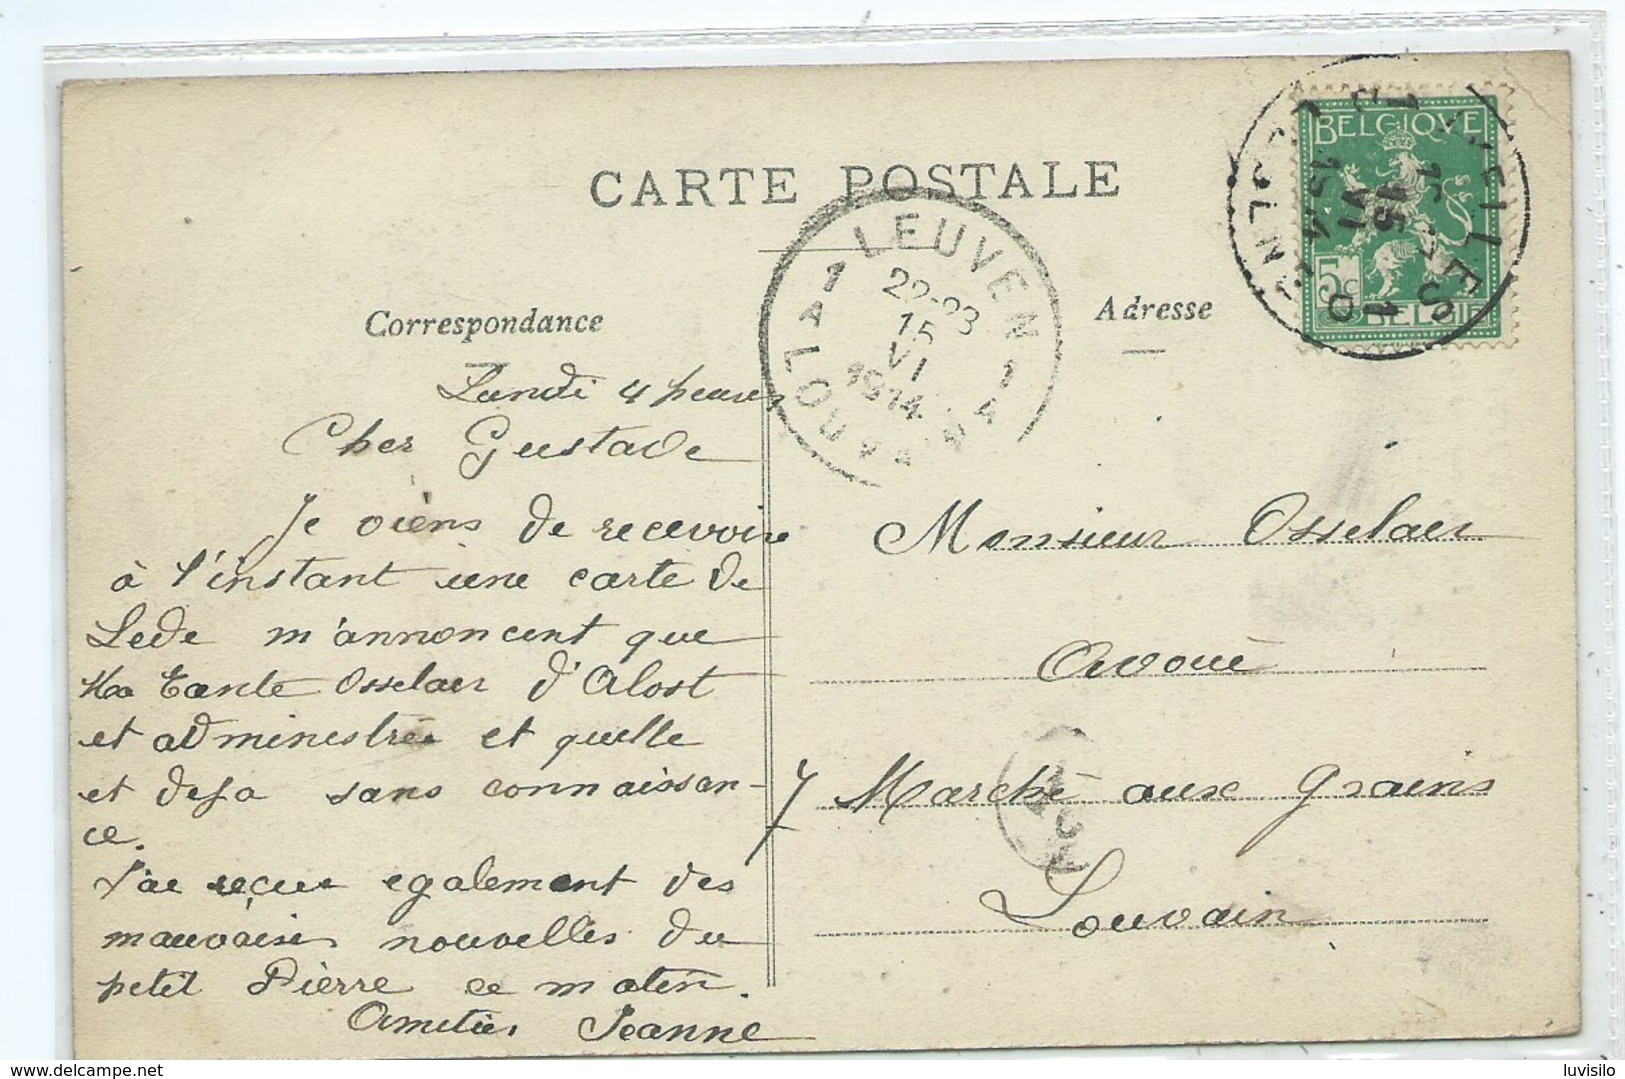 CARTE POSTALE
Correspondance
Lundi 4 heures
Cher Gustave
Je viens de recevoire
à l'instant une carte de
Lede m'annoncent que
Ma Tante Osselaer d'Alost
et administrée et quelle
et deja sans connaissan-
ce.
J'ai reçue egalement des
mauvaises nouvelles du
petit Pierre ce matin.
Amitiés Jeanne
Adresse
Monsieur Osselaer
Avoué
7 Marché aux Grains
Louvain
LEUVEN
1 1
22-23
15
VI
1914
LOUVAIN
BELGIQUE
5c
BELGIE
delcampe.net
luvisilo